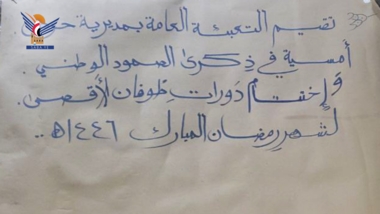 تقيم التعبئة العامة بمديرية
أمسية في ذكرى الصمود الوطني.
و إختتام دورات طوفان الأقصى.
لشهر رمضان المبارك ١٤٤٦هـ..